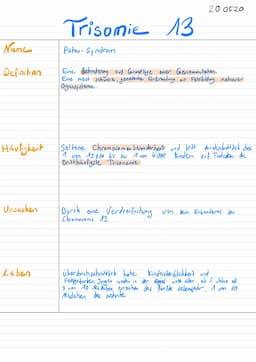 20.05.20
Trisomie 13
Name
Pätau-Syndrom
Definition
Eine Behinderung auf Grundlage einer Genommutation.
Eine meist schwere, genetische Erkrankung mit Fehlbildung mehrerer
Organsysteme.
Häufigkeit
Seltene Chromosomenbesonderheit und tritt durchschnittlich bei
1 von 12000 bis zu 1 von Kindern auf
Dritthäufigste Trisomie
Ursachen
Durch eine Verdreifachung von dem Erbmaterial des
Chromosoms 13.
Leben
Überdurchschnittlich hohe Kindersterblichkeit und
in der Regel nicht älter als 5 Jahre alt
3 von 10 Mädchen erreichen das fünfte Lebensjahr, 1 von 10
Mädchen das zehnte